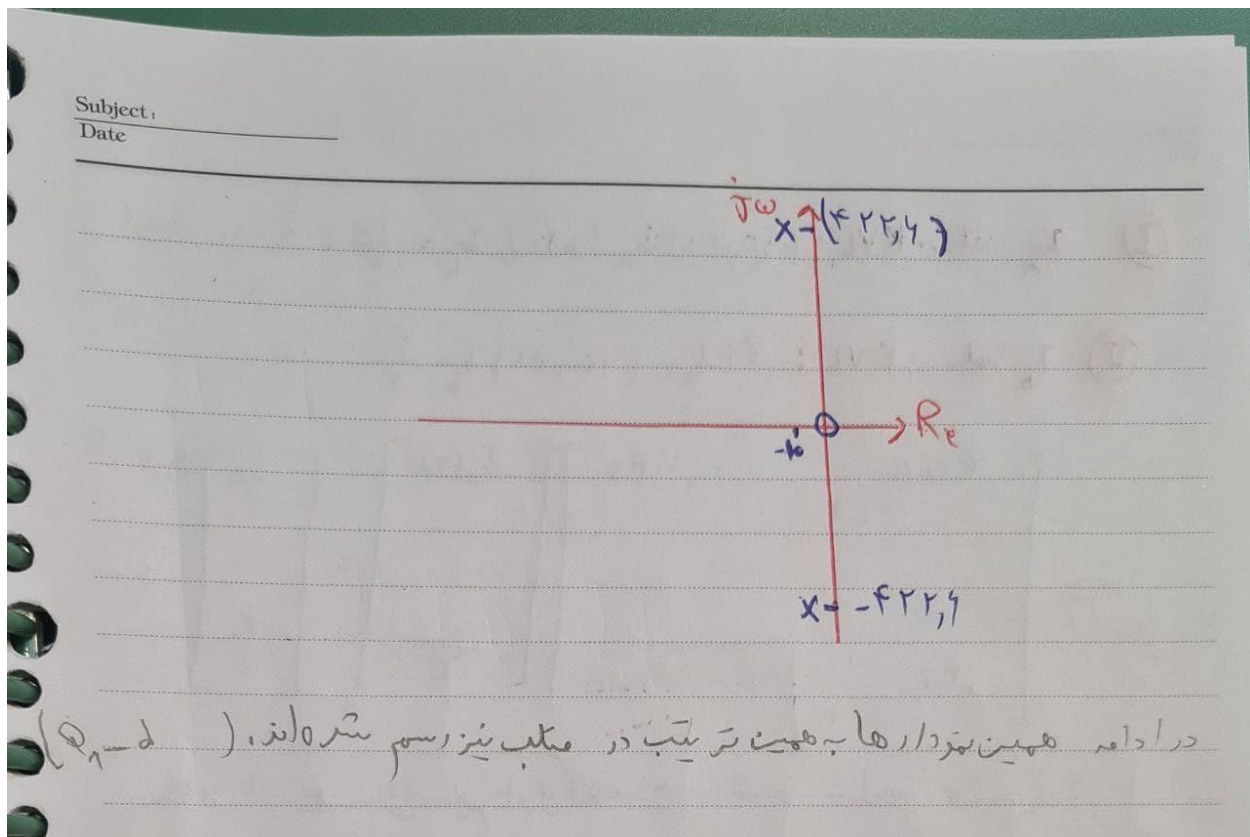 Subject:
Date
jω
x (۴۲۲,۶)
Re
x -۴۲۲,۶
در ادامه همین نمودارها به همین ترتیب در متلب نیز رسم شده‌اند. (Q1-d)